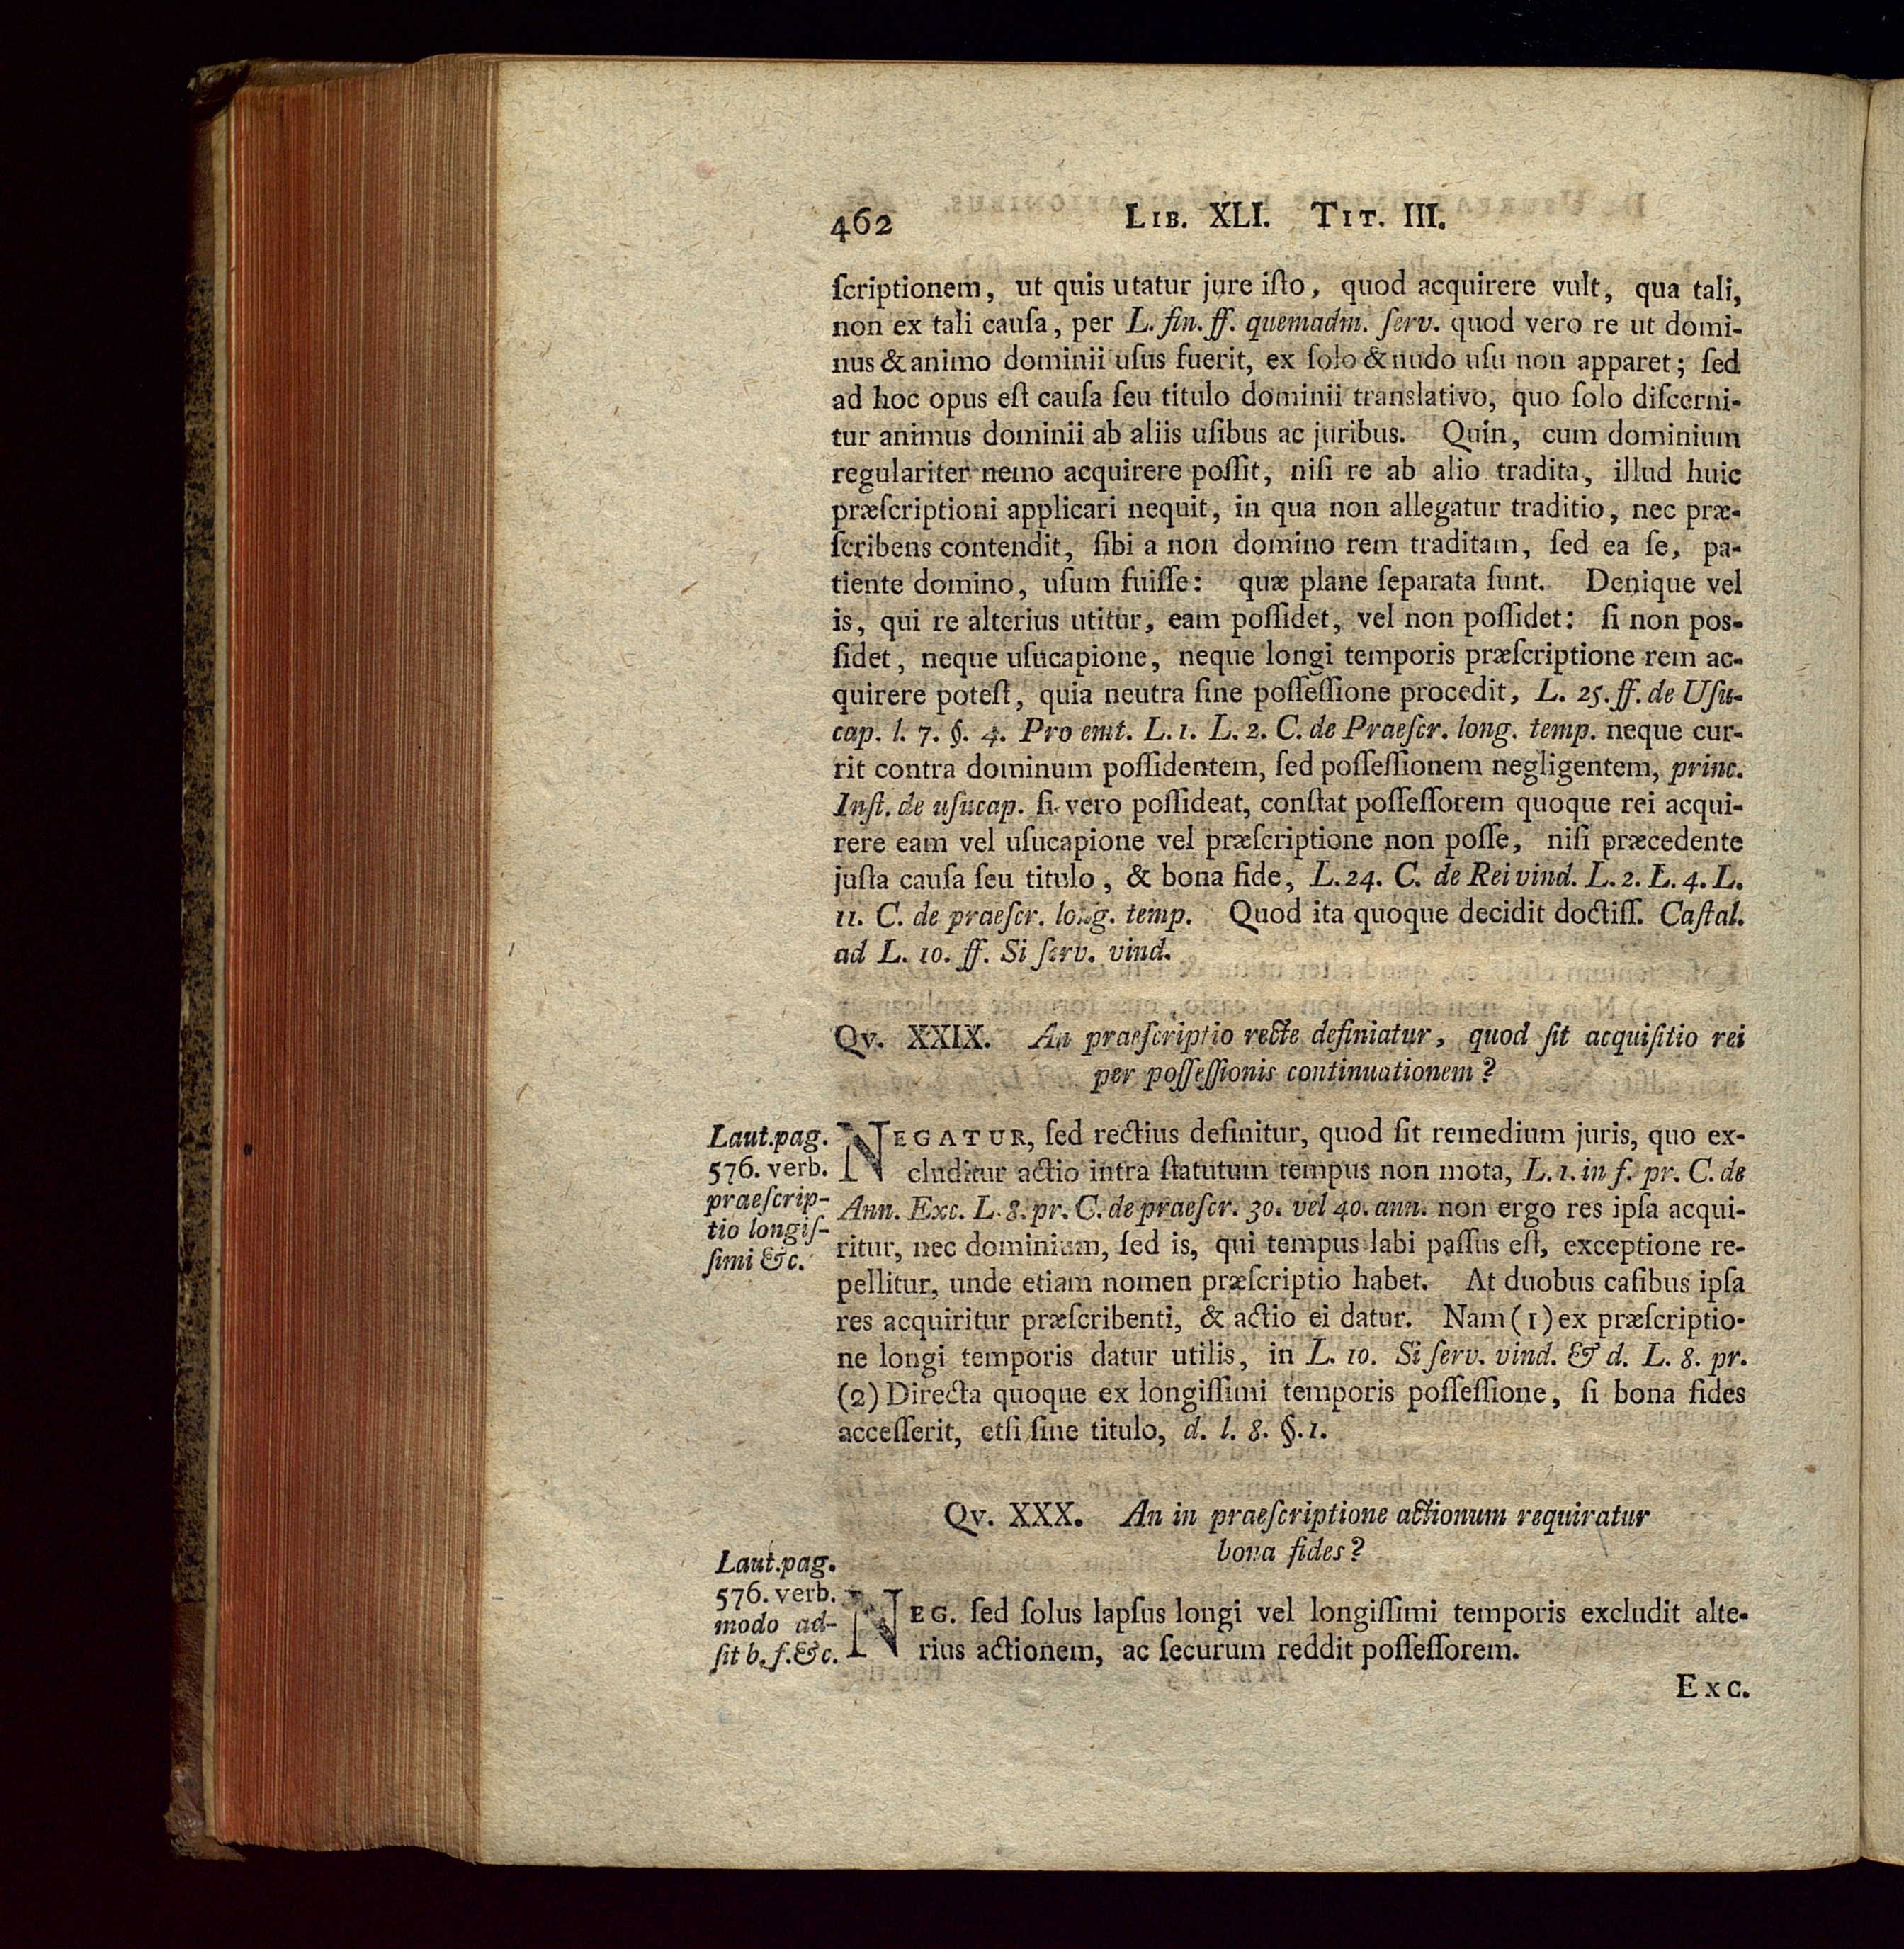 462 LIB. XLI. TIT. III.
ſcriptionem, ut quis utatur jure iſto, quod acquirere vult, qua tali,
non ex tali cauſa, per L. fin. ff. quemadm. ſerv. quod vero re ut domi-
nus & animo dominii uſus fuerit, ex ſolo & nudo uſu non apparet; ſed
ad hoc opus eſt cauſa ſeu titulo dominii translativo, quo ſolo diſcerni-
tur animus dominii ab aliis uſibus ac juribus. Quin, cum dominium
regulariter nemo acquirere poſſit, niſi re ab alio tradita, illud huic
præſcriptioni applicari nequit, in qua non allegatur traditio, nec præ-
ſcribens contendit, ſibi a non domino rem traditam, ſed ea ſe, pa-
tiente domino, uſum fuiſſe: quæ plane ſeparata ſunt. Denique vel
is, qui re alterius utitur, eam poſſidet, vel non poſſidet: ſi non pos-
ſidet, neque uſucapione, neque longi temporis præſcriptione rem ac-
quirere poteſt, quia neutra ſine poſſeſſione procedit, L. 25. ff. de Uſu-
cap. l. 7. §. 4. Pro emt. L. 1. L. 2. C. de Praeſcr. long. temp. neque cur-
rit contra dominum poſſidentem, ſed poſſeſſionem negligentem, princ.
Inſt. de uſucap. ſi vero poſſideat, conſtat poſſeſſorem quoque rei acqui-
rere eam vel uſucapione vel præſcriptione non poſſe, niſi præcedente
juſta cauſa ſeu titulo, & bona fide, L. 24. C. de Rei vind. L. 2. L. 4. L.
11. C. de praeſcr. long. temp. Quod ita quoque decidit doctiſſ. Caſtal.
ad L. 10. ff. Si ſerv. vind.
Qv. XXIX. An praeſcriptio recte definiatur, quod ſit acquiſitio rei
per poſſeſſionis continuationem?
Laut. pag.
576. verb.
praeſcrip-
tio longiſ-
ſimi &c.
NEGATUR, ſed rectius definitur, quod ſit remedium juris, quo ex-
cluditur actio intra ſtatutum tempus non mota, L. 1. in f. pr. C. de
Ann. Exc. L. 8. pr. C. de praeſcr. 30. vel 40. ann. non ergo res ipſa acqui-
ritur, nec dominium, ſed is, qui tempus labi paſſus eſt, exceptione re-
pellitur, unde etiam nomen præſcriptio habet. At duobus caſibus ipſa
res acquiritur præſcribenti, & actio ei datur. Nam (1) ex præſcriptio-
ne longi temporis datur utilis, in L. 10. Si ſerv. vind. & d. L. 8. pr.
(2) Directa quoque ex longiſſimi temporis poſſeſſione, ſi bona fides
acceſſerit, etſi ſine titulo, d. l. 8. §. 1.
Qv. XXX. An in praeſcriptione actionum requiratur
bona fides?
Laut. pag.
576. verb.
modo ad-
ſit b. f. &c.
NEG. ſed ſolus lapſus longi vel longiſſimi temporis excludit alte-
rius actionem, ac ſecurum reddit poſſeſſorem.
EXC.